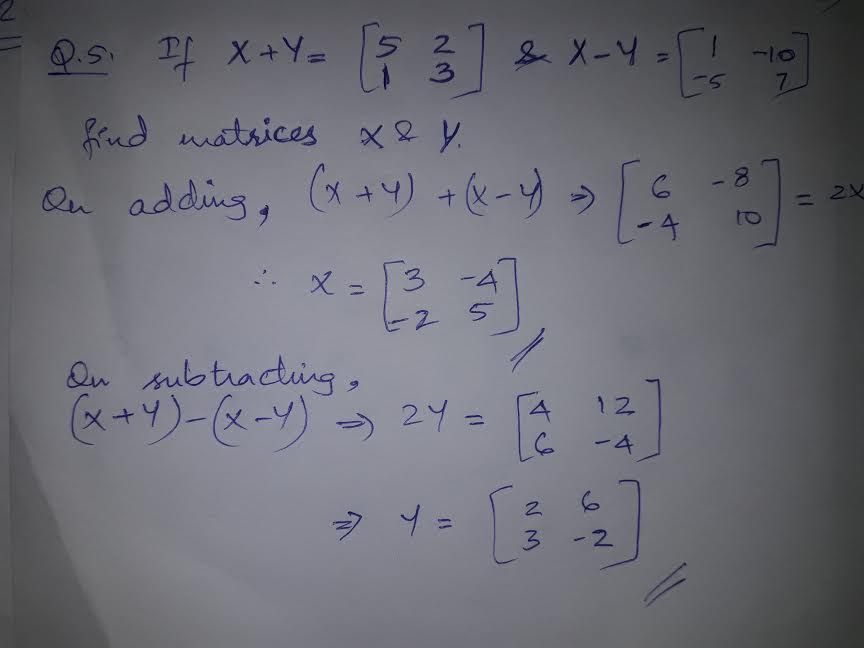 2
Q.5. If X+Y= [5 2 & X-Y = [1 -10
1 3] -5 7]
find matrices X & Y.
On adding, (X+Y)+(X-Y) ⇒ [6 -8
-4 10] = 2X
∴ X = [3 -4
-2 5]
On subtracting,
(X+Y)-(X-Y) ⇒ 2Y = [4 12
6 -4]
⇒ Y = [2 6
3 -2]